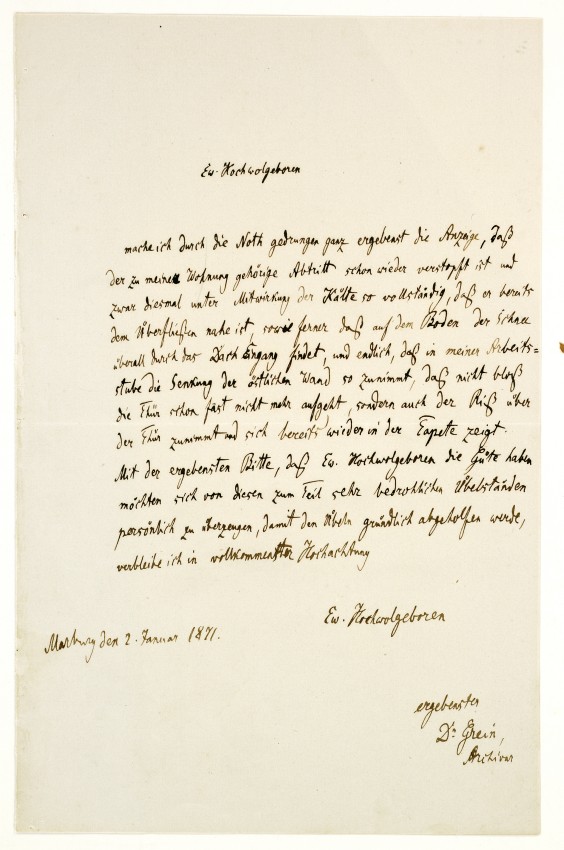 Ew. Hochwolgeboren
mache ich durch die Noth gedrungen ganz ergebenst die Anzeige, daß
der zu meiner Wohnung gehörige Abtritt schon wieder verstopft ist und
zwar diesmal unter Mitwirkung der Kälte so vollständig, daß er bereits
dem Überfließen nahe ist, sowie ferner daß auf dem Boden der Schnee
überall durch das Dach Eingang findet, und endlich, daß in meiner Arbeits=
stube die Senkung der östlichen Wand so zunimmt, daß nicht bloß
die Thür schon fast nicht mehr aufgeht, sondern auch der Riß über
der Thür zunimmt und sich bereits wieder in der Tapete zeigt.
Mit der ergebensten Bitte, daß Ew. Hochwolgeboren die Güte haben
möchten sich von diesen zum Teil sehr bedrohlichen Übelständen
persönlich zu überzeugen, damit den Übeln gründlich abgeholfen werde,
verbleibe ich in vollkommenster Hochachtung
Ew. Hochwolgeboren
Marburg den 2. Januar 1871.
ergebenster
Dr. Grein,
Archivar